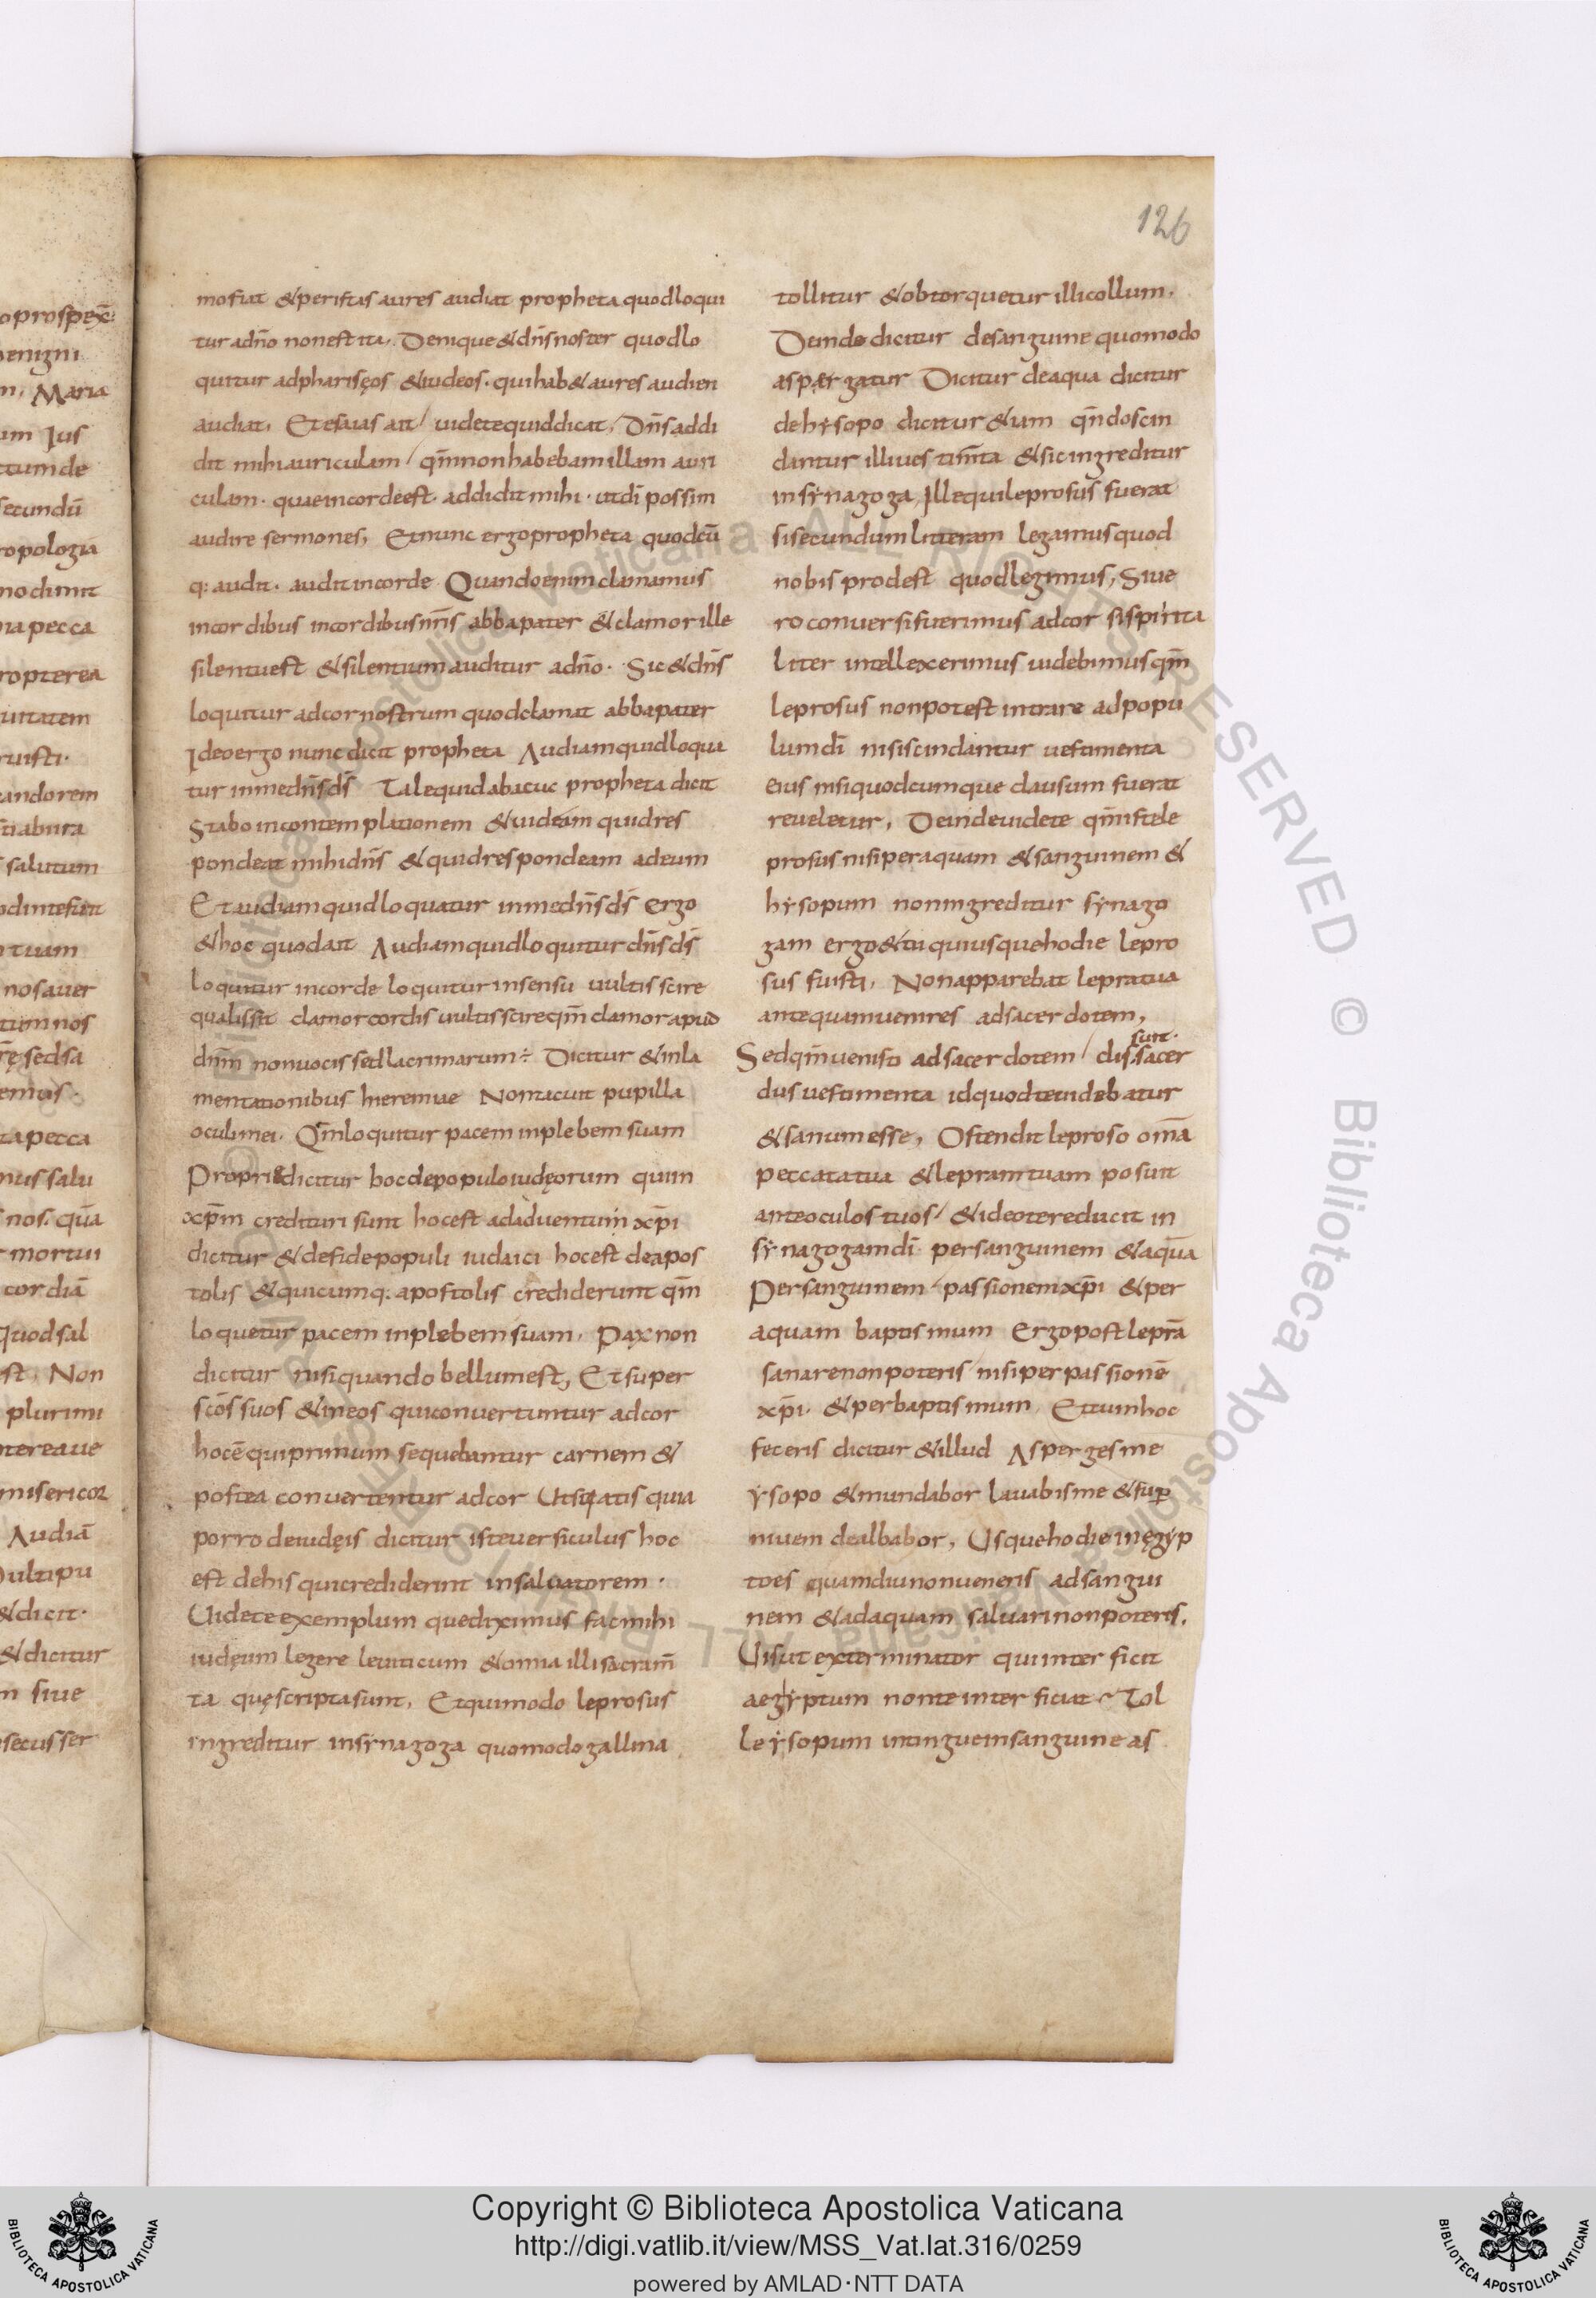 126
mo fiat & per istas aures audiat propheta quod loqui
tur a dn̄o non est ita. Denique & dn̄s noster quod lo
quitur ad pharisęos & iudeos. qui hab& aures audien
audiat. Et esaias ait / uidete quid dicat. Dn̄s addi
dit mihi auriculam / qm̄ non habebam illam auri
culam. quae in corde est. addidit mihi. ut dī possim
audire sermones, Et nunc ergo propheta quodcū
q: audit. audit in corde Quando enim clamamus
in cordibus in cordibus nr̄is abba pater & clamor ille
silentu est & silentium auditur a dn̄o. Sic & dn̄s
loquitur ad cor nostrum quod clamat abba pater
Ideo ergo nunc dicit propheta Audiam quid loqua
tur in me dn̄s ds̄ Tale quid abacuc propheta dicit
Stabo in contemplationem & uideam quid res
pondeat mihi dn̄s & quid respondeam ad eum
Et audiam quid loquatur in me dn̄s ds̄ ergo
& hoc quod ait Audiam quid loquitur dn̄s ds̄
loquitur in corde loquitur in sensu uultis scire
qualis sit clamor cordis uultis scire qm̄ clamor apud
dn̄m non uocis sed lacrimarum÷ Dicitur & in la
mentationibus hieremiae Non tacuit pupilla
oculi mei. Qm̄ loquitur pacem in plebem suam
Propri& dicitur hoc de populo iudęorum qui in
xp̄m credituri sunt hoc est ad aduentum xp̄i
dicitur & de fide populi iudaici hoc est de apos
tolis & quicumq: apostolis crediderunt qm̄
loquetur pacem in plebem suam. Pax non
dicitur nisi quando bellum est, Et super
scōs suos & in eos qui conuertuntur ad cor
hoc ē qui primum sequebantur carnem &
postea conuertentur ad cor Ut sciatis quia
porro de iudęis dicitur iste uersiculus hoc
est de his qui crediderint in saluatorem.
Uidete exemplum quediximus fac mihi
iudęum legere leuiticum & omnia illi sacram̄
ta quę scripta sunt. Et quimodo leprosus
ingreditur in synagoga quomodo gallina
tollitur & obtorquetur illi collum.
Deinde dicitur de sanguine quomodo
aspergatur Dicitur de aqua dicitur
de hysopo dicitur & um qn̄do scin
dantur illi uestim̄ta & sic ingreditur
in synagoga, Ille qui leprosus fuerat
si secundum litteram legamus quod
nobis prodest quod legimus, Si ue
ro conuersi fuerimus ad cor si spirita
liter intellexerimus uidebimus qm̄
leprosus non potest intrare ad popu
lum dī nisi scindantur uestimenta
eius nisi quodcumque clausum fuerat
reueletur, Deinde uidete qm̄ iste le
prosus nisi per aquam & sanguinem &
hysopum non ingreditur synago
gam ergo & tu qui usque hodie lepro
sus fuisti, Non apparebat lepra tua
antequam uenires ad sacerdotem,
Sed qm̄ uenisti ad sacerdotem / dis sunt. sacer
dus uestimenta id quod te uidebatur
& sanum esse, Ostendit leproso om̄a
peccata tua & lepram tuam posuit
ante oculos tuos / & ideo te reducit in
synagogam dī per sanguinem & aquā
Per sanguinem passionem xp̄i & per
aquam baptismum Ergo post leprā
sanare non poteris / nisi per passionē
xp̄i. & per baptismum Et cum hoc
feceris dicitur & illud Asperges me
ysopo & mundabor lauabis me & sup̄
niuem dealbabor, Usque hodie in ęgyp
to es quamdiu non ueneris ad sangui
nem & ad aquam saluari non poteris.
Uis ut exterminator qui interficit
aegyptum non te interficiat Tol
le ysopum intingue in sanguine as
Copyright © Biblioteca Apostolica Vaticana
http://digi.vatlib.it/view/MSS_Vat.lat.316/0259
powered by AMLAD·NTT DATA